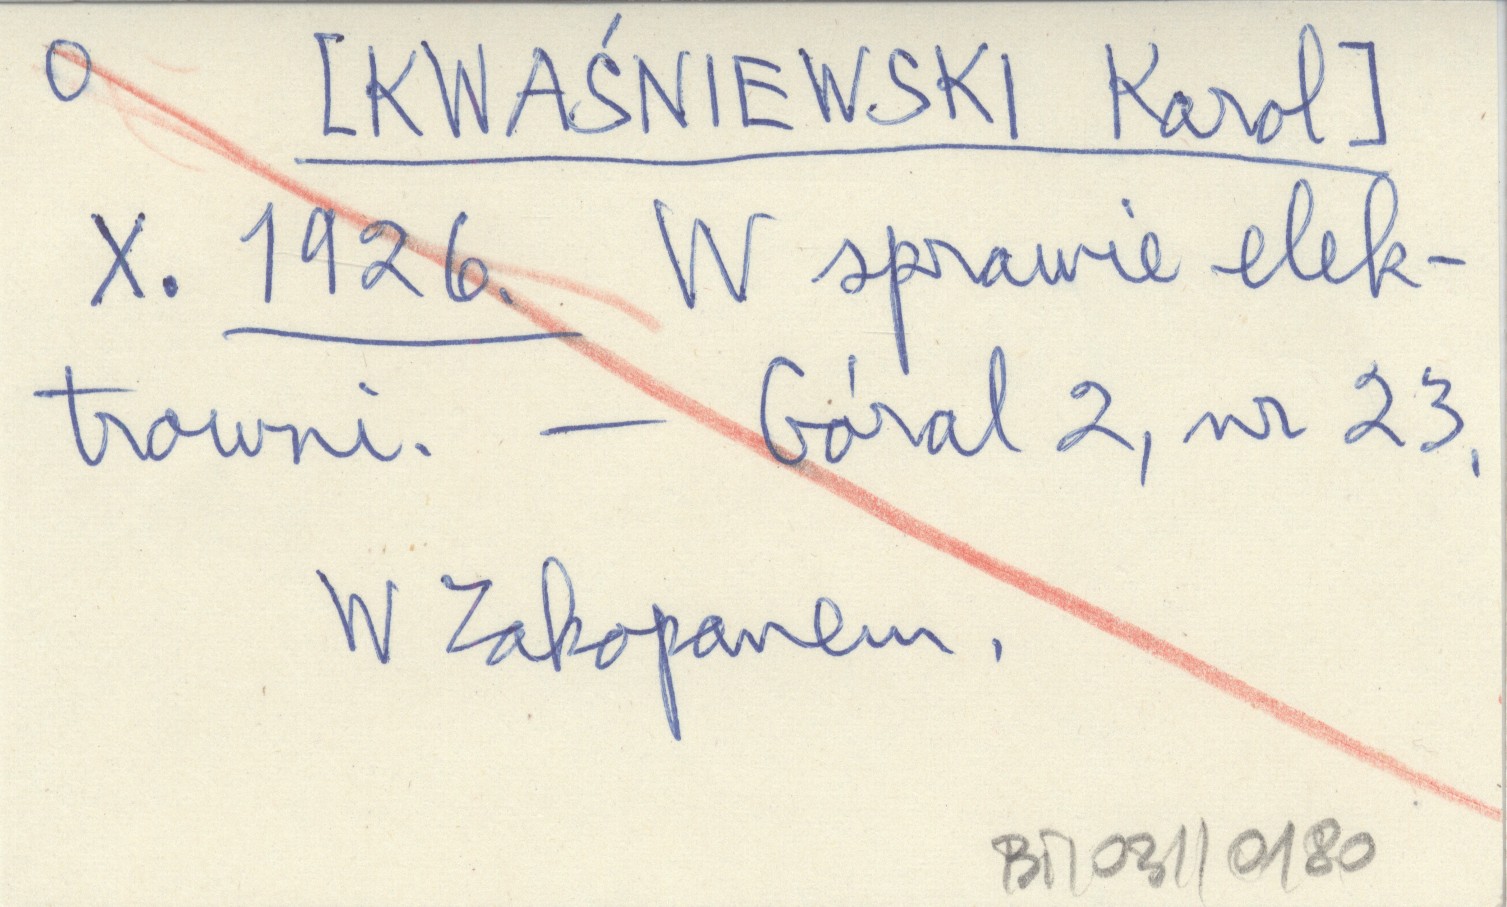 O [KWAŚNIEWSKI Karol]
X. 1926. W sprawie elek-
trowni. — Góral 2, nr 23,
W Zakopanem.
BT/031/0180